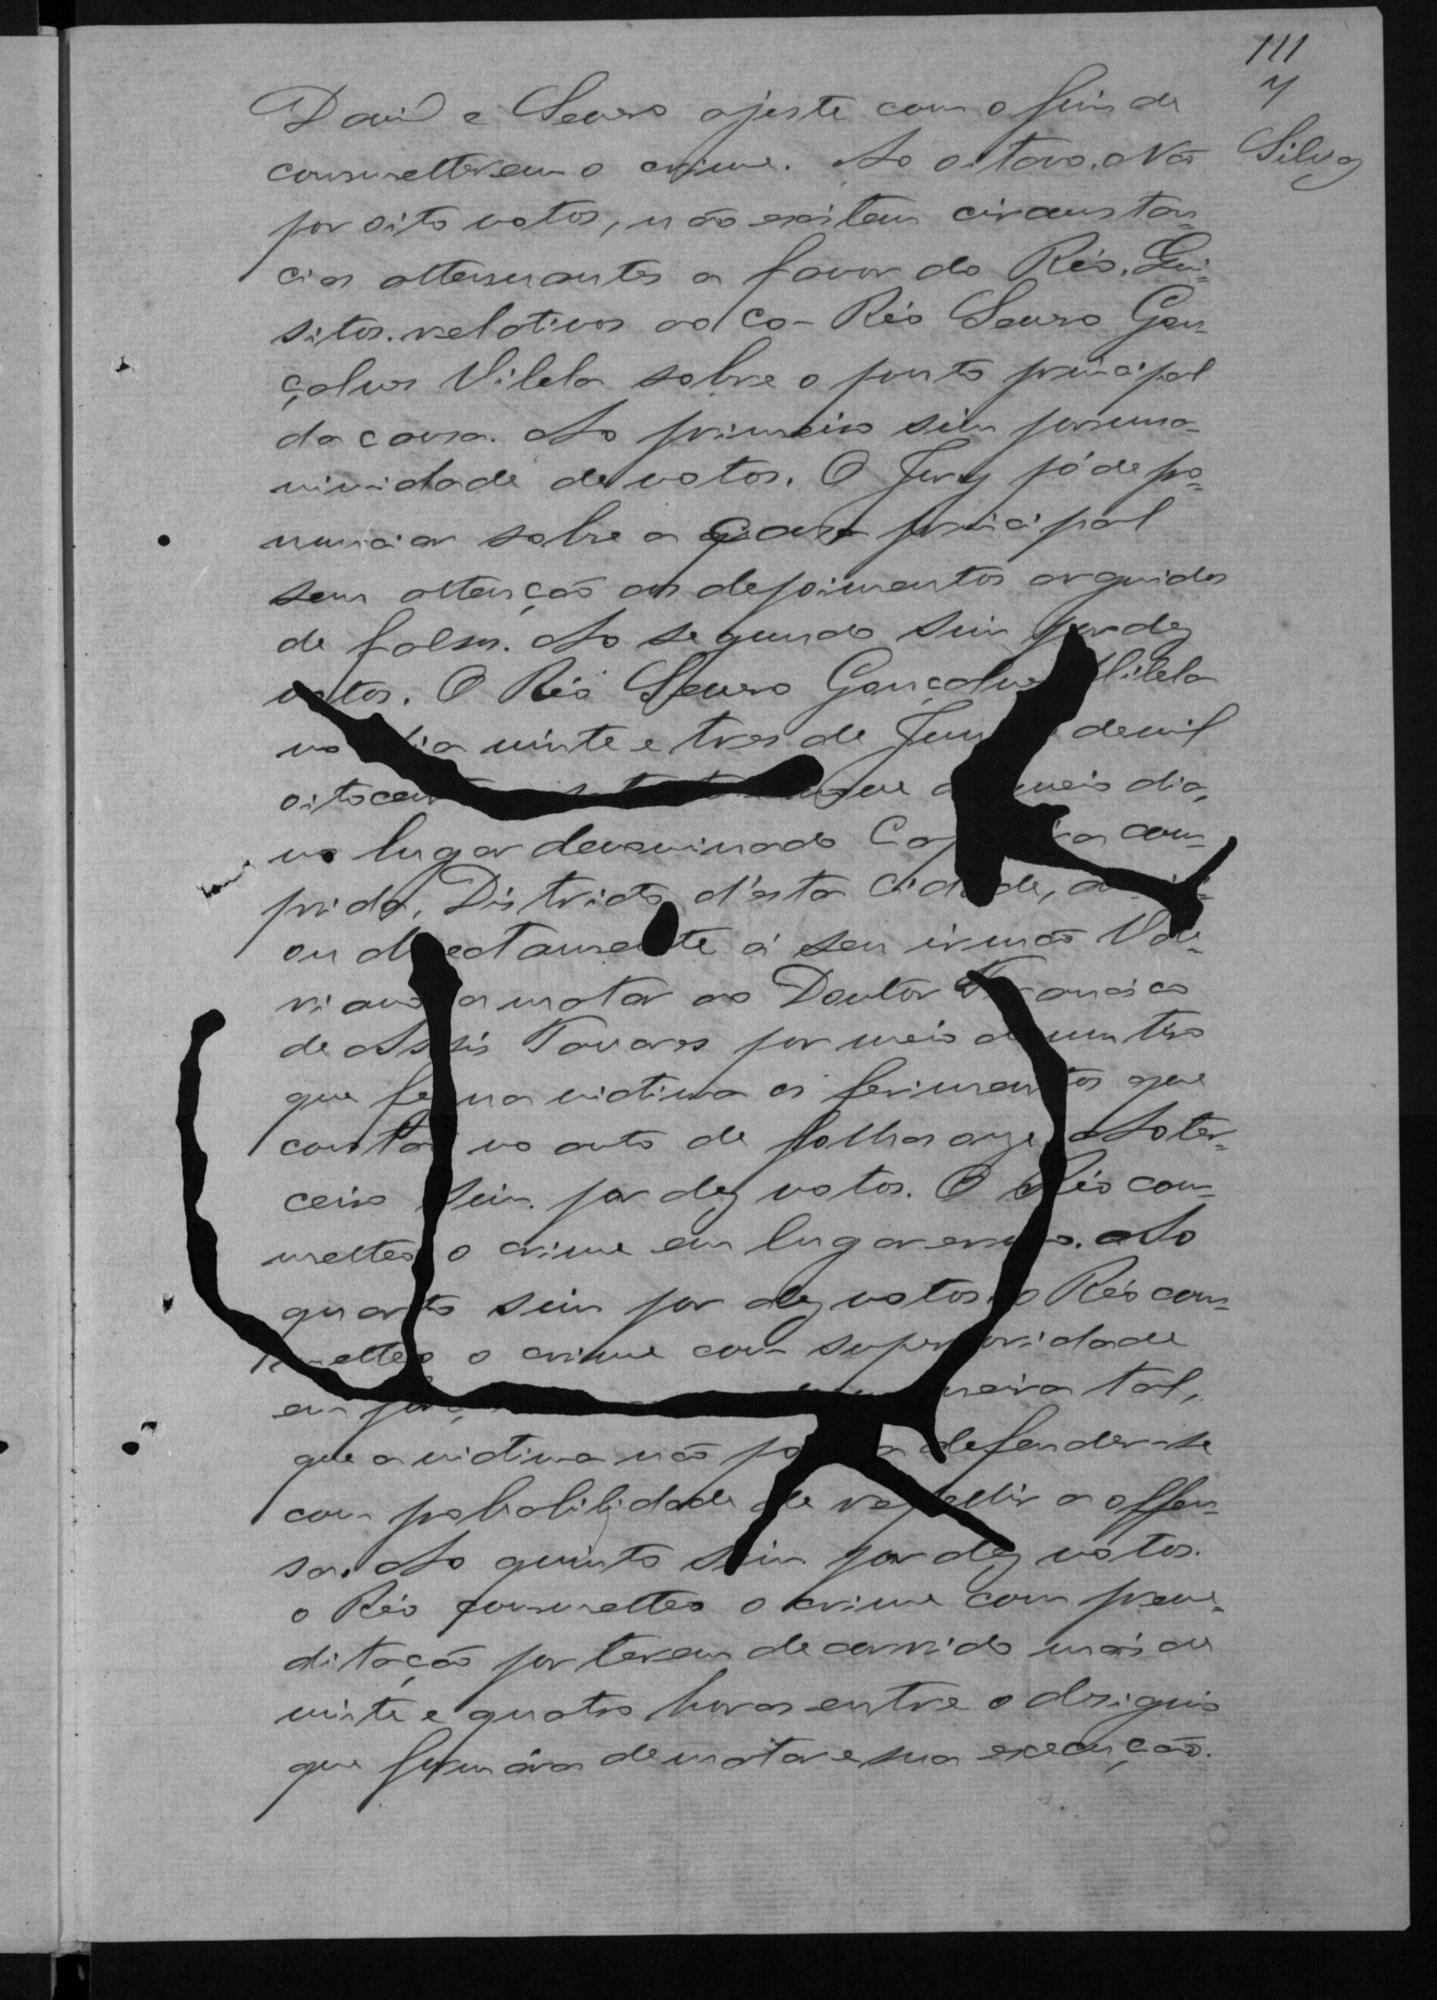 111
7
Silva
David e Lauro ajuste com o fim de
commetterem o crime. Ao oitavo. Não
por oito votos, não existem circumstan-
cias attenuantes a favor do Réo. Qui-
sitos relativos ao co-Réo Lauro Gon-
çalves Vilela sobre o ponto principal
da causa. Ao primeiro sim por una-
nimidade de votos. O Jury póde pro-
nunciar sobre a causa principal
sem attenção aos depoimentos arguidos
de falsos. Ao segundo sim por dez
votos. O Réo Lauro Gonçalves Vilela
no dia vinte e tres de de mil
oitocen que meio dia,
no lugar denominado Com-
prida, Districto d'esta Cidade,
ou directamente á seu irmão Vale-
riano a matar ao Doutor Francisco
de Assis Tavares por meio de um tiro
que fez na victima os ferimentos que
constão no auto de folhas onze. Ao ter-
ceiro sim por dez votos. O Réo com-
metteo o crime em lugar ermo. Ao
quarto sim por dez votos o Réo com-
metteo o crime com superioridade
em maneira tal,
que a victima não podia defender-se
com probabilidade de repellir a offen-
sa. Ao quinto sim por dez votos.
o Réo commetteo o crime com preme-
ditação por terem decorrido mais de
vinte e quatro horas entre o designio
que formára de matar e sua execução.